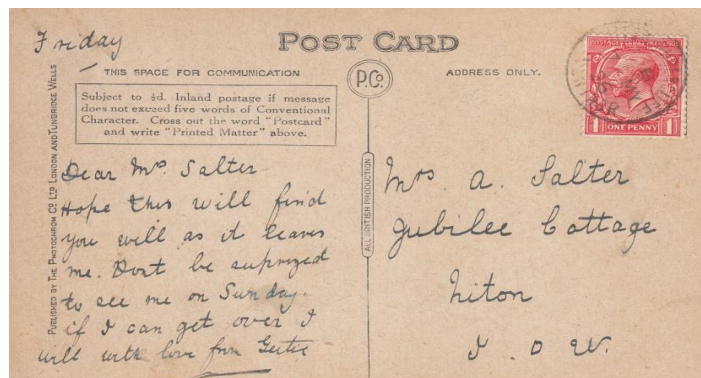 Friday
POST CARD
THIS SPACE FOR COMMUNICATION
P.Co.
ADDRESS ONLY.
Subject to ½d. Inland postage if message
does not exceed five words of Conventional
Character. Cross out the word "Postcard"
and write "Printed Matter" above.
PUBLISHED BY THE PHOTOCHROM CO. LTD. LONDON AND TUNBRIDGE WELLS
ALL BRITISH PRODUCTION
Dear Mrs. Salter
Hope this will find
you will as it leaves
me. Dont be suprized
to see me on Sunday.
if I can get over I
will with love from Gertie
Mrs A. Salter
Jubilee Cottage
Niton
I. O W.
POSTAGE
REVENUE
1 ONE PENNY 1